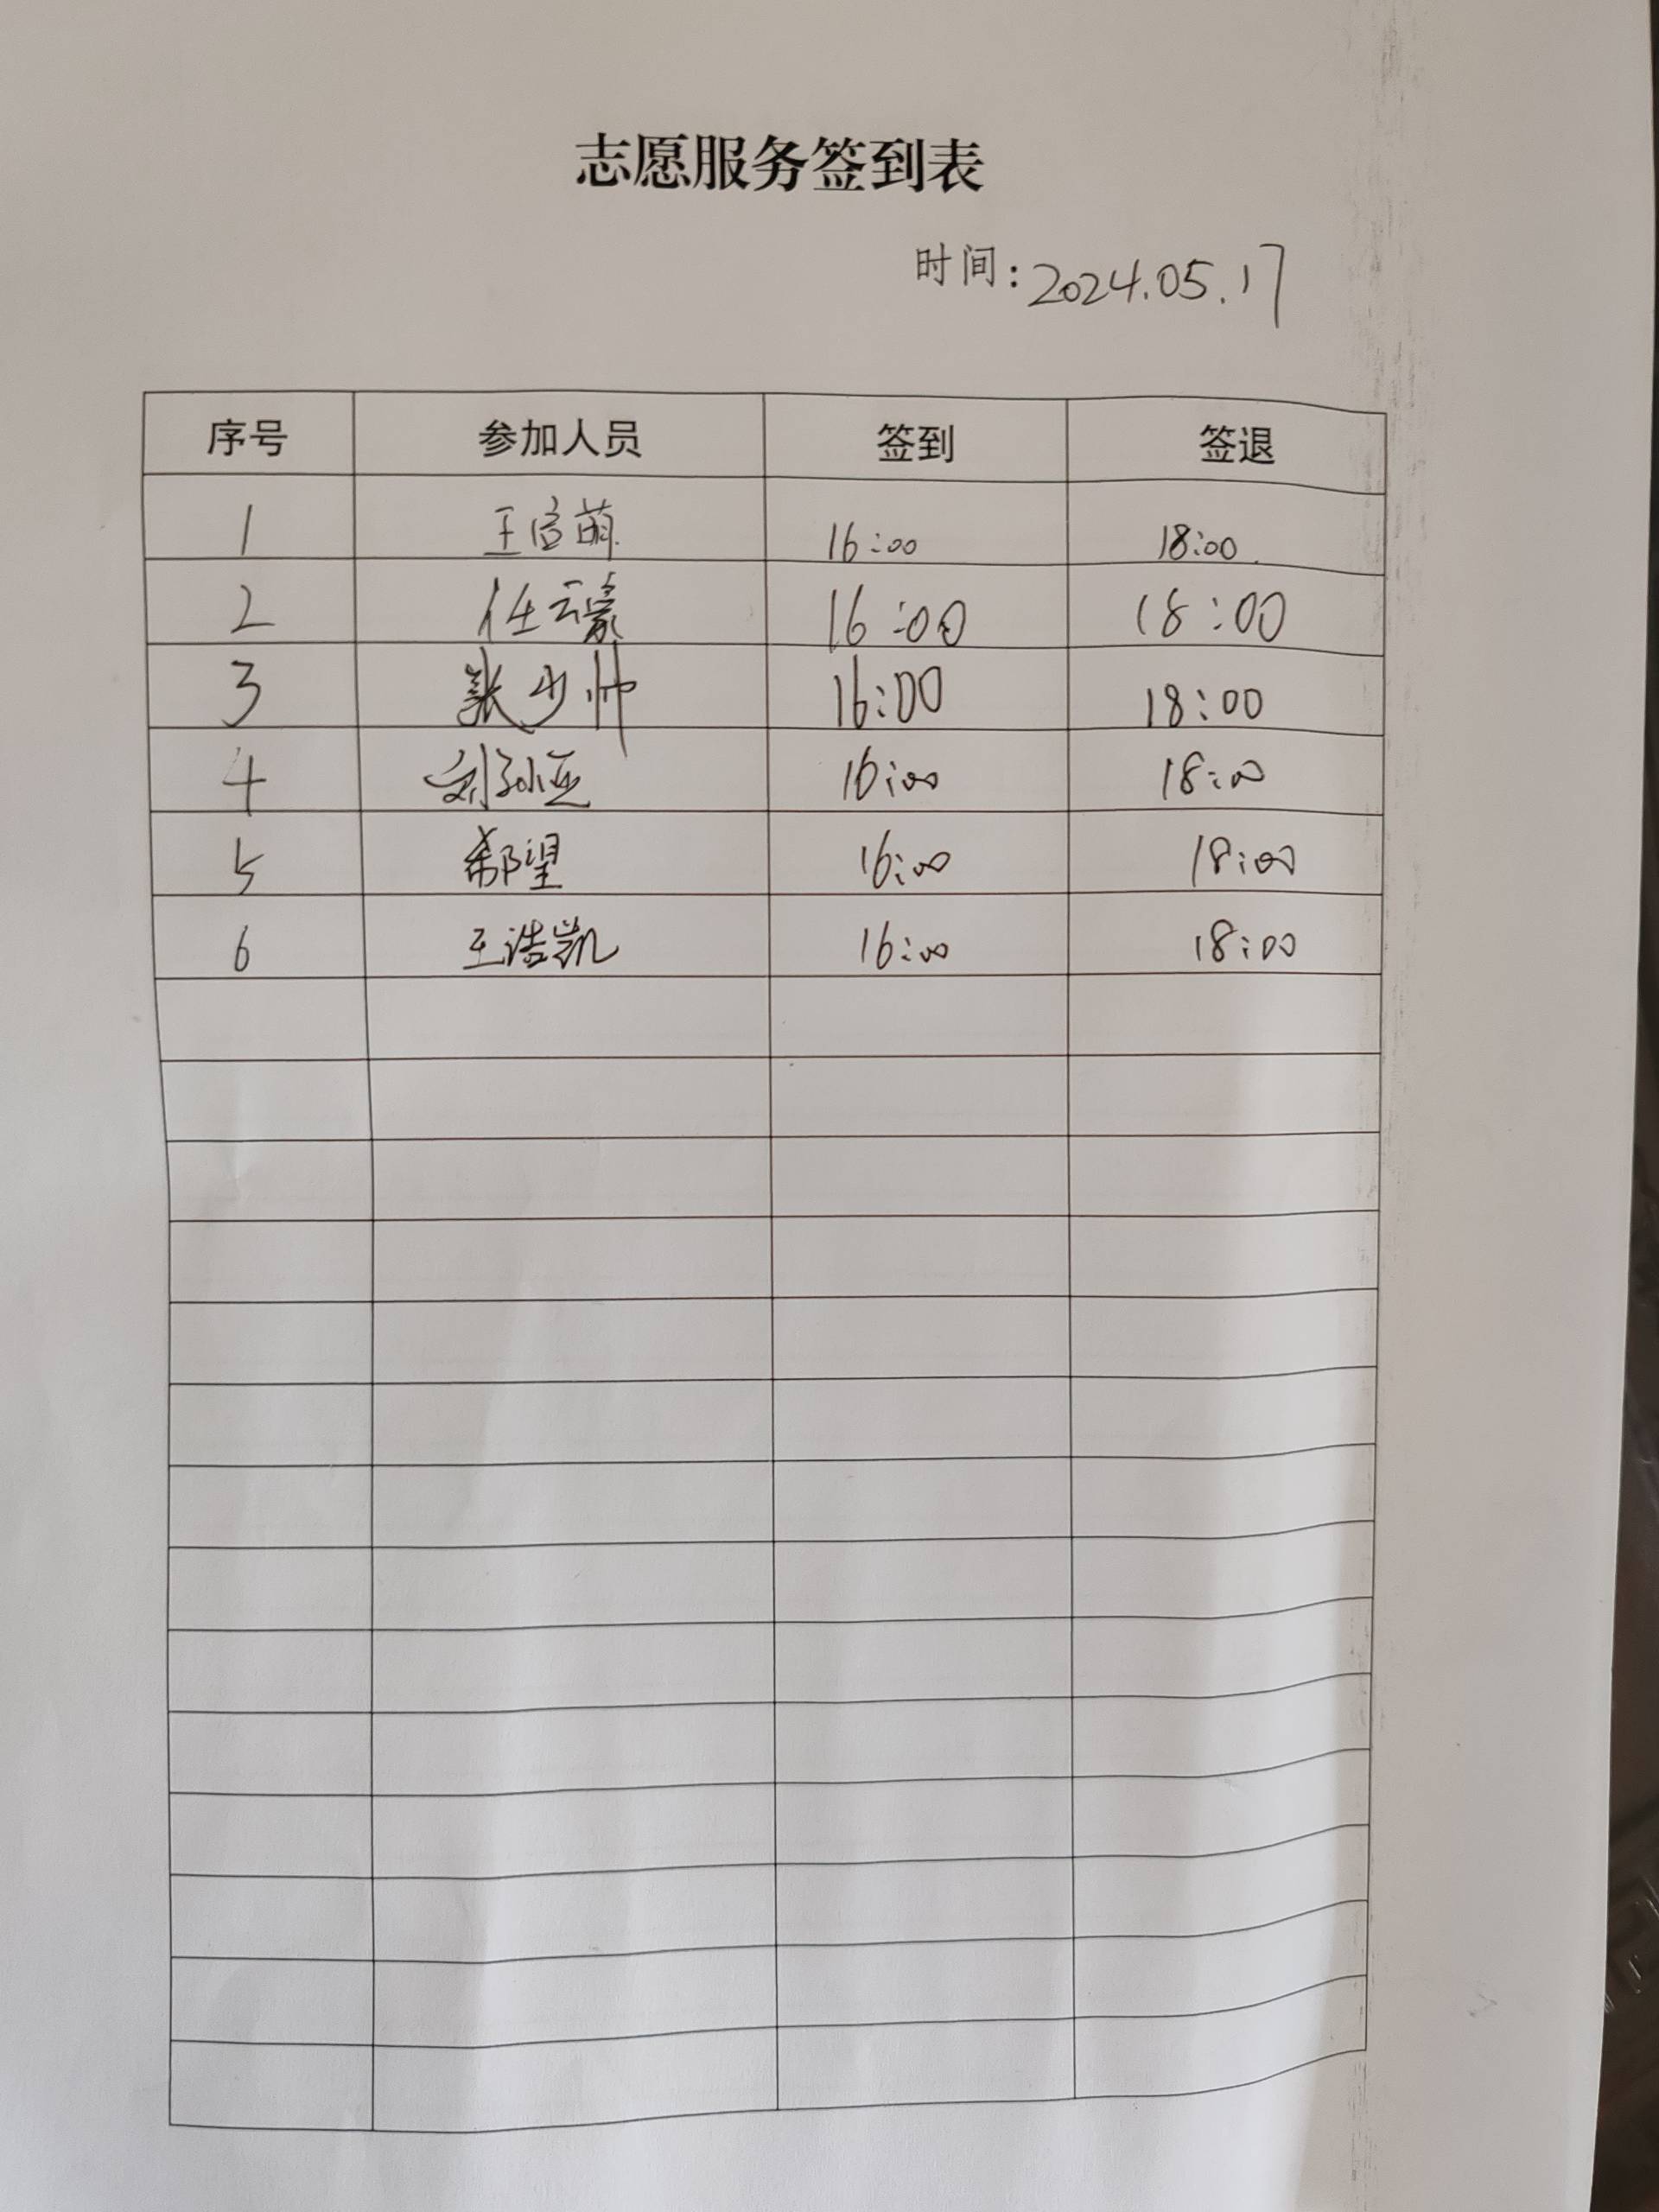 志愿服务签到表
时间：2024.05.17
序号 参加人员 签到 签退
1 王宣萌 16:00 18:00
2 任云豪 16:00 18:00
3 张少帅 16:00 18:00
4 刘孙亚 16:00 18:00
5 郗望 16:00 18:00
6 王浩凯 16:00 18:00